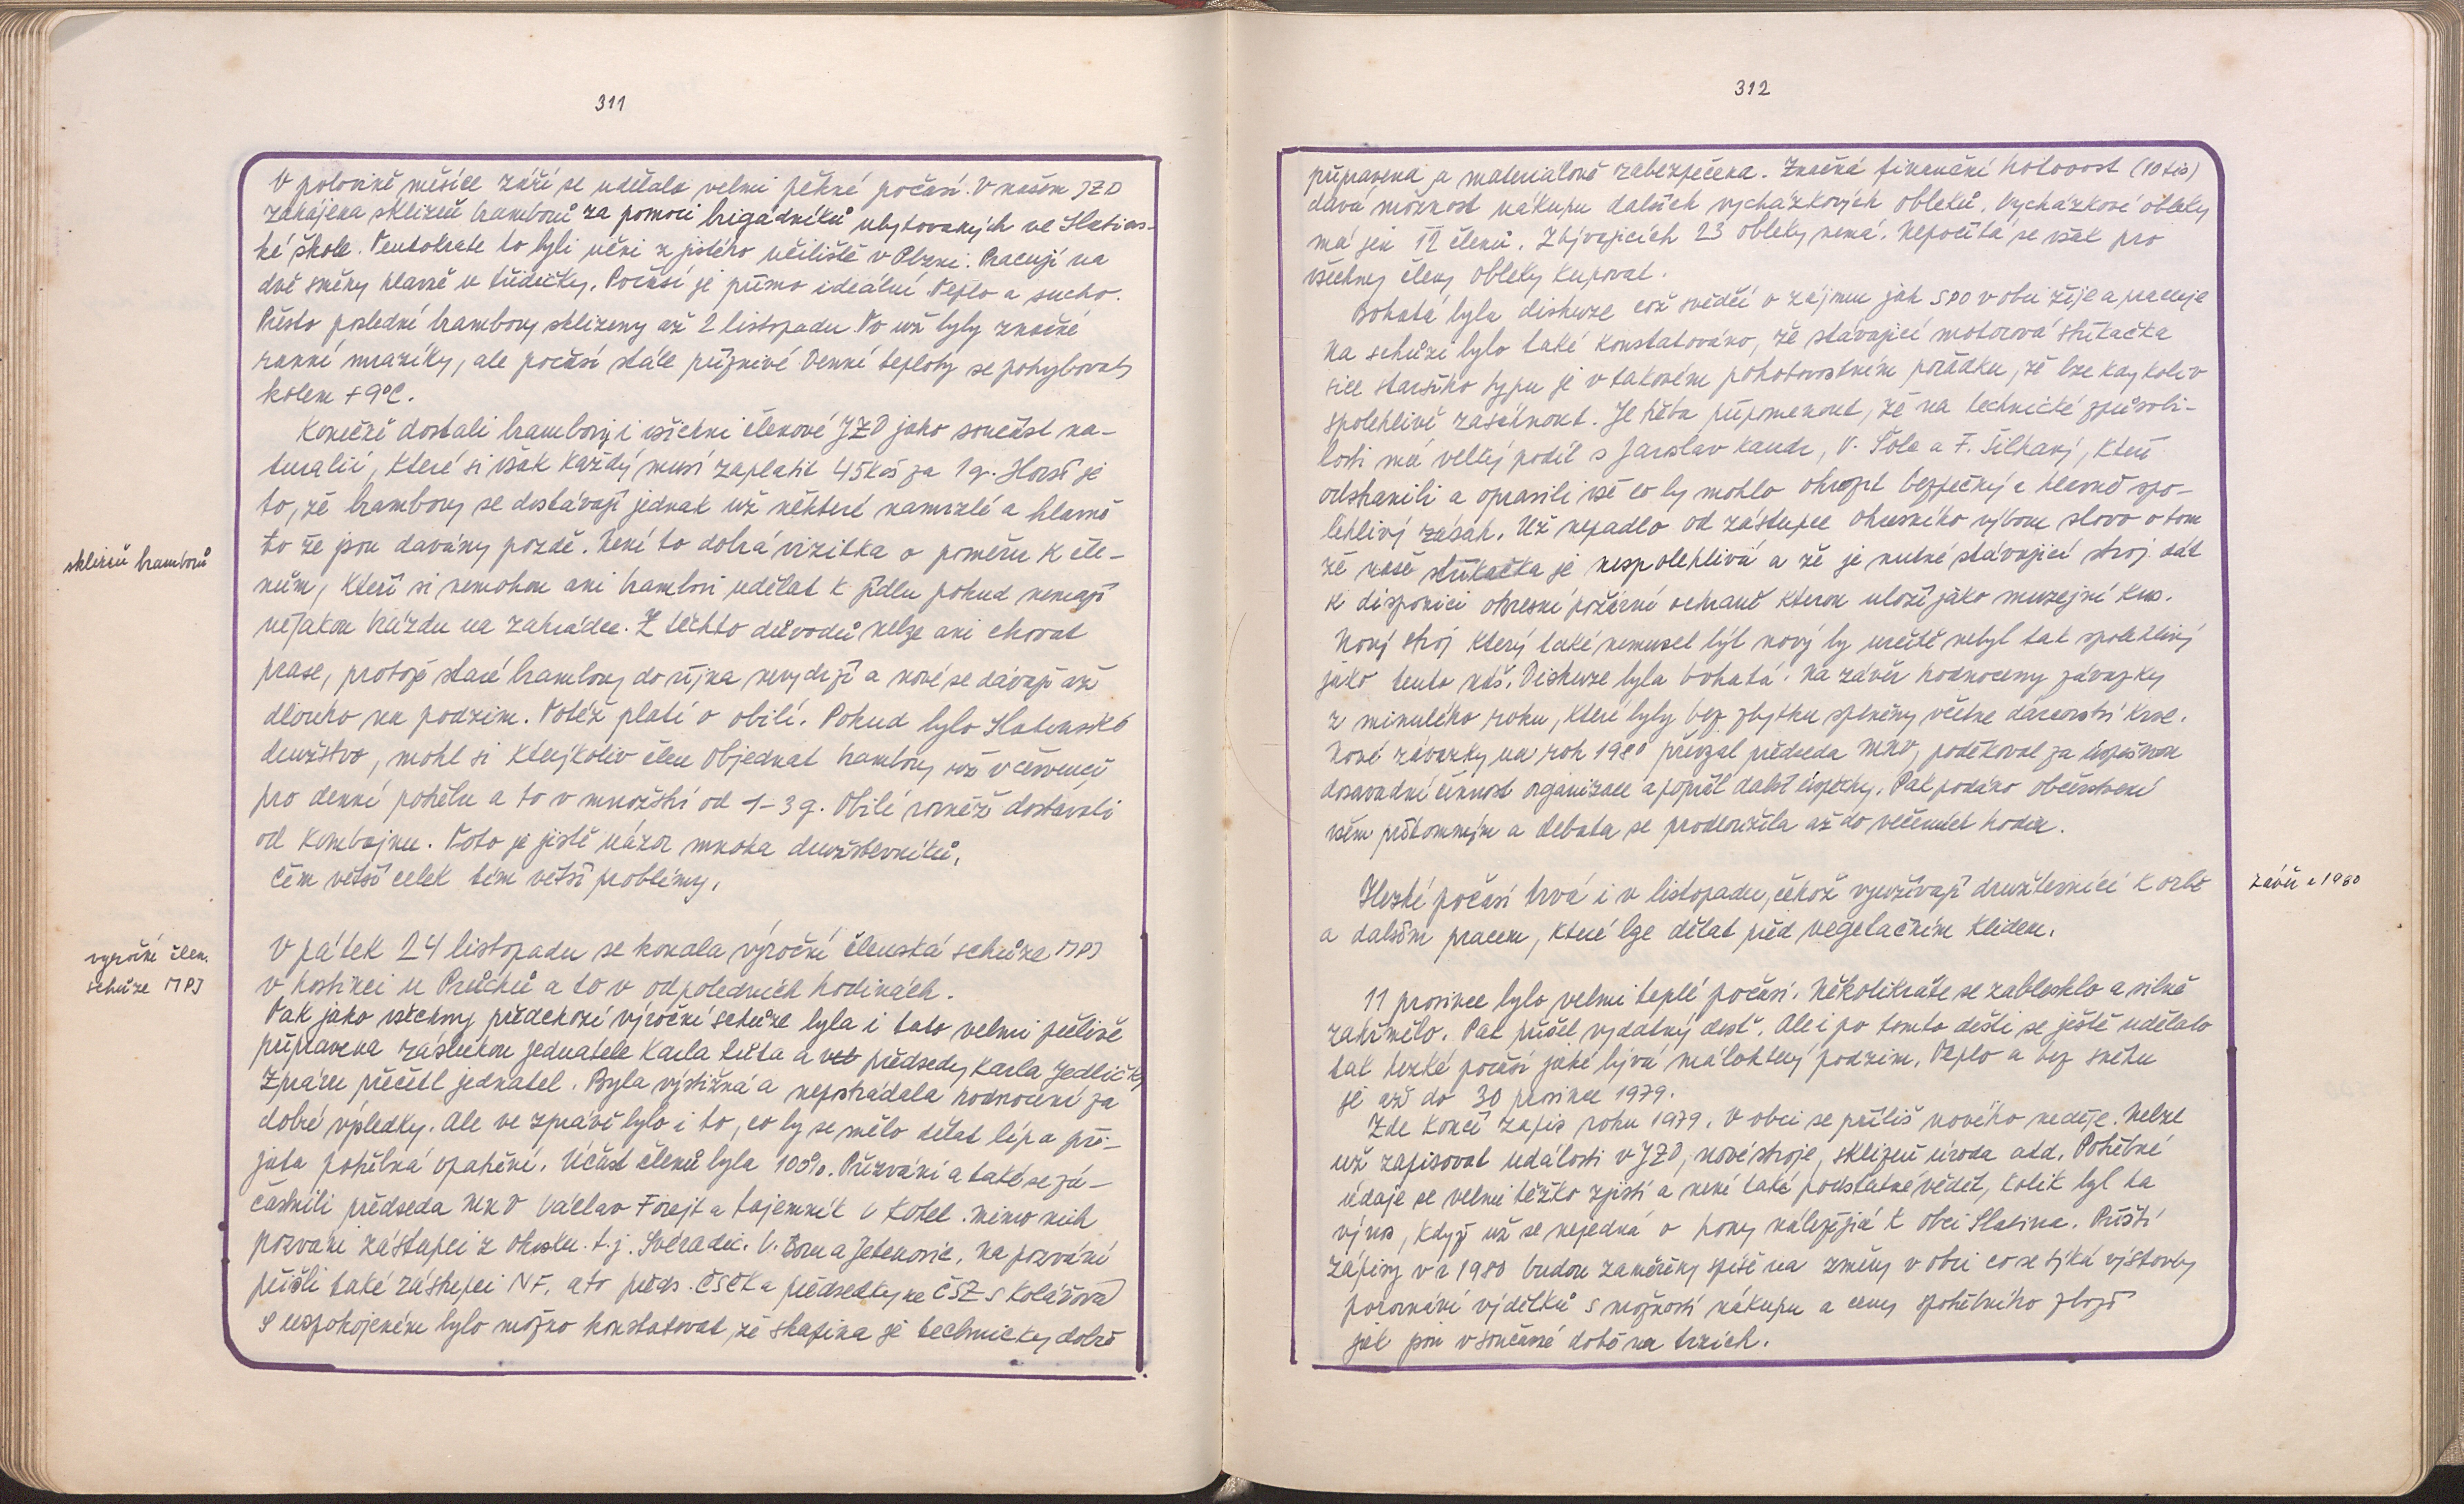 311
V polovině měsíce září se udělalo velmi pěkné počasí. V našem JZD
zahájena sklizeň bramborů za pomoci brigádníků ubytovaných ve Slatins-
ké škole. Tentokrate to byli učni z jistého učiliště v Plzni. Pracují na
dvě směny hlavně u třídičky. Počasí je přímo ideální. Teplo a sucho.
Přesto poslední brambory sklizeny až 2 listopadu. To už byly značné
ranní mrazíky, ale počasí stále příznivé. Denní teploty se pohybovaly
kolem +9°C.
Konečně dostali brambory i všichni členové JZD jako součást na-
turalií, které si však každý musí zaplatit 45 Kčs za 1 q. Horší je
to, že brambory se dostávají jednak už některé namrzlé a hlavně
to že jsou davány pozdě. Není to dobrá vizitka o poměru k čle-
nům, kteří si nemohou ani brambor udělat k jídlu pokud nemají
nějakou hrázdu na zahrádce. Z těchto důvodů nelze ani chovat
prase, protože staré brambory do října nevydrží a nové se dávají až
dlouho na podzim. Totéž platí o obilí. Pokud bylo Slatinské
družstvo, mohl si kterýkoliv člen objednat brambory již v červenci
pro denní potřebu a to v množství od 1-3 q. Obilí rovněž dostávali
od kombajnu. Toto je jistě názor mnoha družstevníků,
čím větší celek tím větší problémy.
sklizeň brambor̊ů
V pátek 24 listopadu se konala výroční členská schůze MPJ
v hostinci u Průchů a to v odpoledních hodinách.
Tak jako všechny předchozí výroční schůze byla i tato velmi pečlivě
připravena zásluhou jednatele Karla Lůta a předsedy Karla Jedličky
Zprávu přečetl jednatel. Byla výstižná a nepostrádala hodnocení za
dobré výsledky. Ale ve zprávě bylo i to, co by se mělo dělat lépe a při-
jata potřebná opatření. Účast členů byla 100%. Přizváni a také se zú-
častnili předseda MNV Václav Forejt a tajemník V Kotel. Mimo nich
pozváni zástupci z okrsku. t.j. Svéradic. V. Boru a Jetenovic. Na pozvání
přišli také zástupci NF. a to předs. ČSČK a předsedkyně ČSŽ s Kolářová
S uspokojením bylo možno konstatovat, že skupina je technicky dobře
výroční člen.
schůze MPJ
312
připravena a materiálově zabezpečena. Značná finanční hotovost (10 tis)
dává možnost nákupu dalších vycházkových obleků. Vycházkové obleky
má jen 12 členů. Zbývajících 23 obleky nemá. Nepočítá se však pro
všechny členy obleky kupovat.
Bohatá byla diskuze což svědčí o zájmu jak SPO v obci žije a pracuje
Na schůzi bylo také konstatováno, že stávající motorová stříkačka
sice staršího typu je v takovém pohotovostním pořádku, že lze kdykoliv
spolehlivě zasáhnout. Je třeba připomenout, že na technické způsobi-
losti má velký podíl s Jaroslav Kandr, V. Šole a F. Šilhavý, kteří
odstranili a opravili vše co by mohlo ohrozit bezpečný a hlavně spo-
lehlivý zásah. Už nepadlo od zástupce okresního výboru slovo o tom
že naše stříkačka je nespolehlivá a že je nutné stávající stroj dát
k disposici okresní požární ochraně kterou uloží jako muzejní kus.
Nový stroj který také nemusel být nový by určitě nebyl tak spolehlivý
jako tento náš. Diskuze byla bohatá. Na závěr hodnoceny závazky
z minulého roku, které byly bez zbytku splněny včetne dárcovství krve.
Nové závazky na rok 1980 převzal předseda MNV, poděkoval za úspěšnou
dosavadní činnost organizace a popřál další úspěchy. Pak podáno občerstvení
všem přítomným a debata se prodloužila až do večerních hodin.
Hezké počasí trvá i v listopadu, čehož využívají družstevníci k orbě
a dalším pracem, které lze dělat před vegetačním klidem.
závěr r 1980
11 prosince bylo velmi teplé počasí. Několikráte se zablesklo a silně
zahřmělo. Pak přišel vydatný dešť. Ale i po tomto dešti se ještě udělalo
tak hezké počasí jaké bývá málokterý podzim. Teplo a bez sněhu
je až do 30 prosince 1979.
Zde končí zápis roku 1979. V obci se příliš nového neděje. Nelze
už zapisovat události v JZD, nové stroje, sklizeň úroda atd. Potřebné
údaje se velmi těžko zjistí a není také podstatné vědět, kolik byl ta
výnos, když už se nejedná o hony náležející k obci Slatina. Příští
zápisy v r 1980 budou zaměřeny spíše na změny v obci co se týká výstavby
porovnávi výdělků s možností nákupu a ceny spotřebního zboží
jak jsou v současné době na trzích.